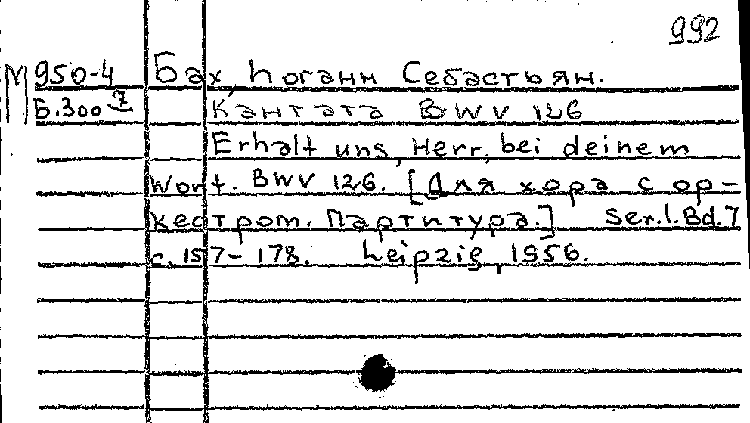 992
М 950-4 Бах, Иоганн Себастьян.
Б.300 7 Кантата BWV 126
Erhalt uns, Herr, bei deinem
Wort. BWV 126. [Для хора с ор-
кестром. Партитура.] Ser. I. Bd. 7
с. 157-178. Leipzig, 1956.